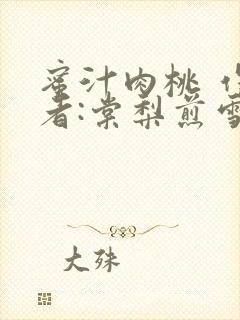 蜜汁肉桃
者:棠梨煎雪
大殊